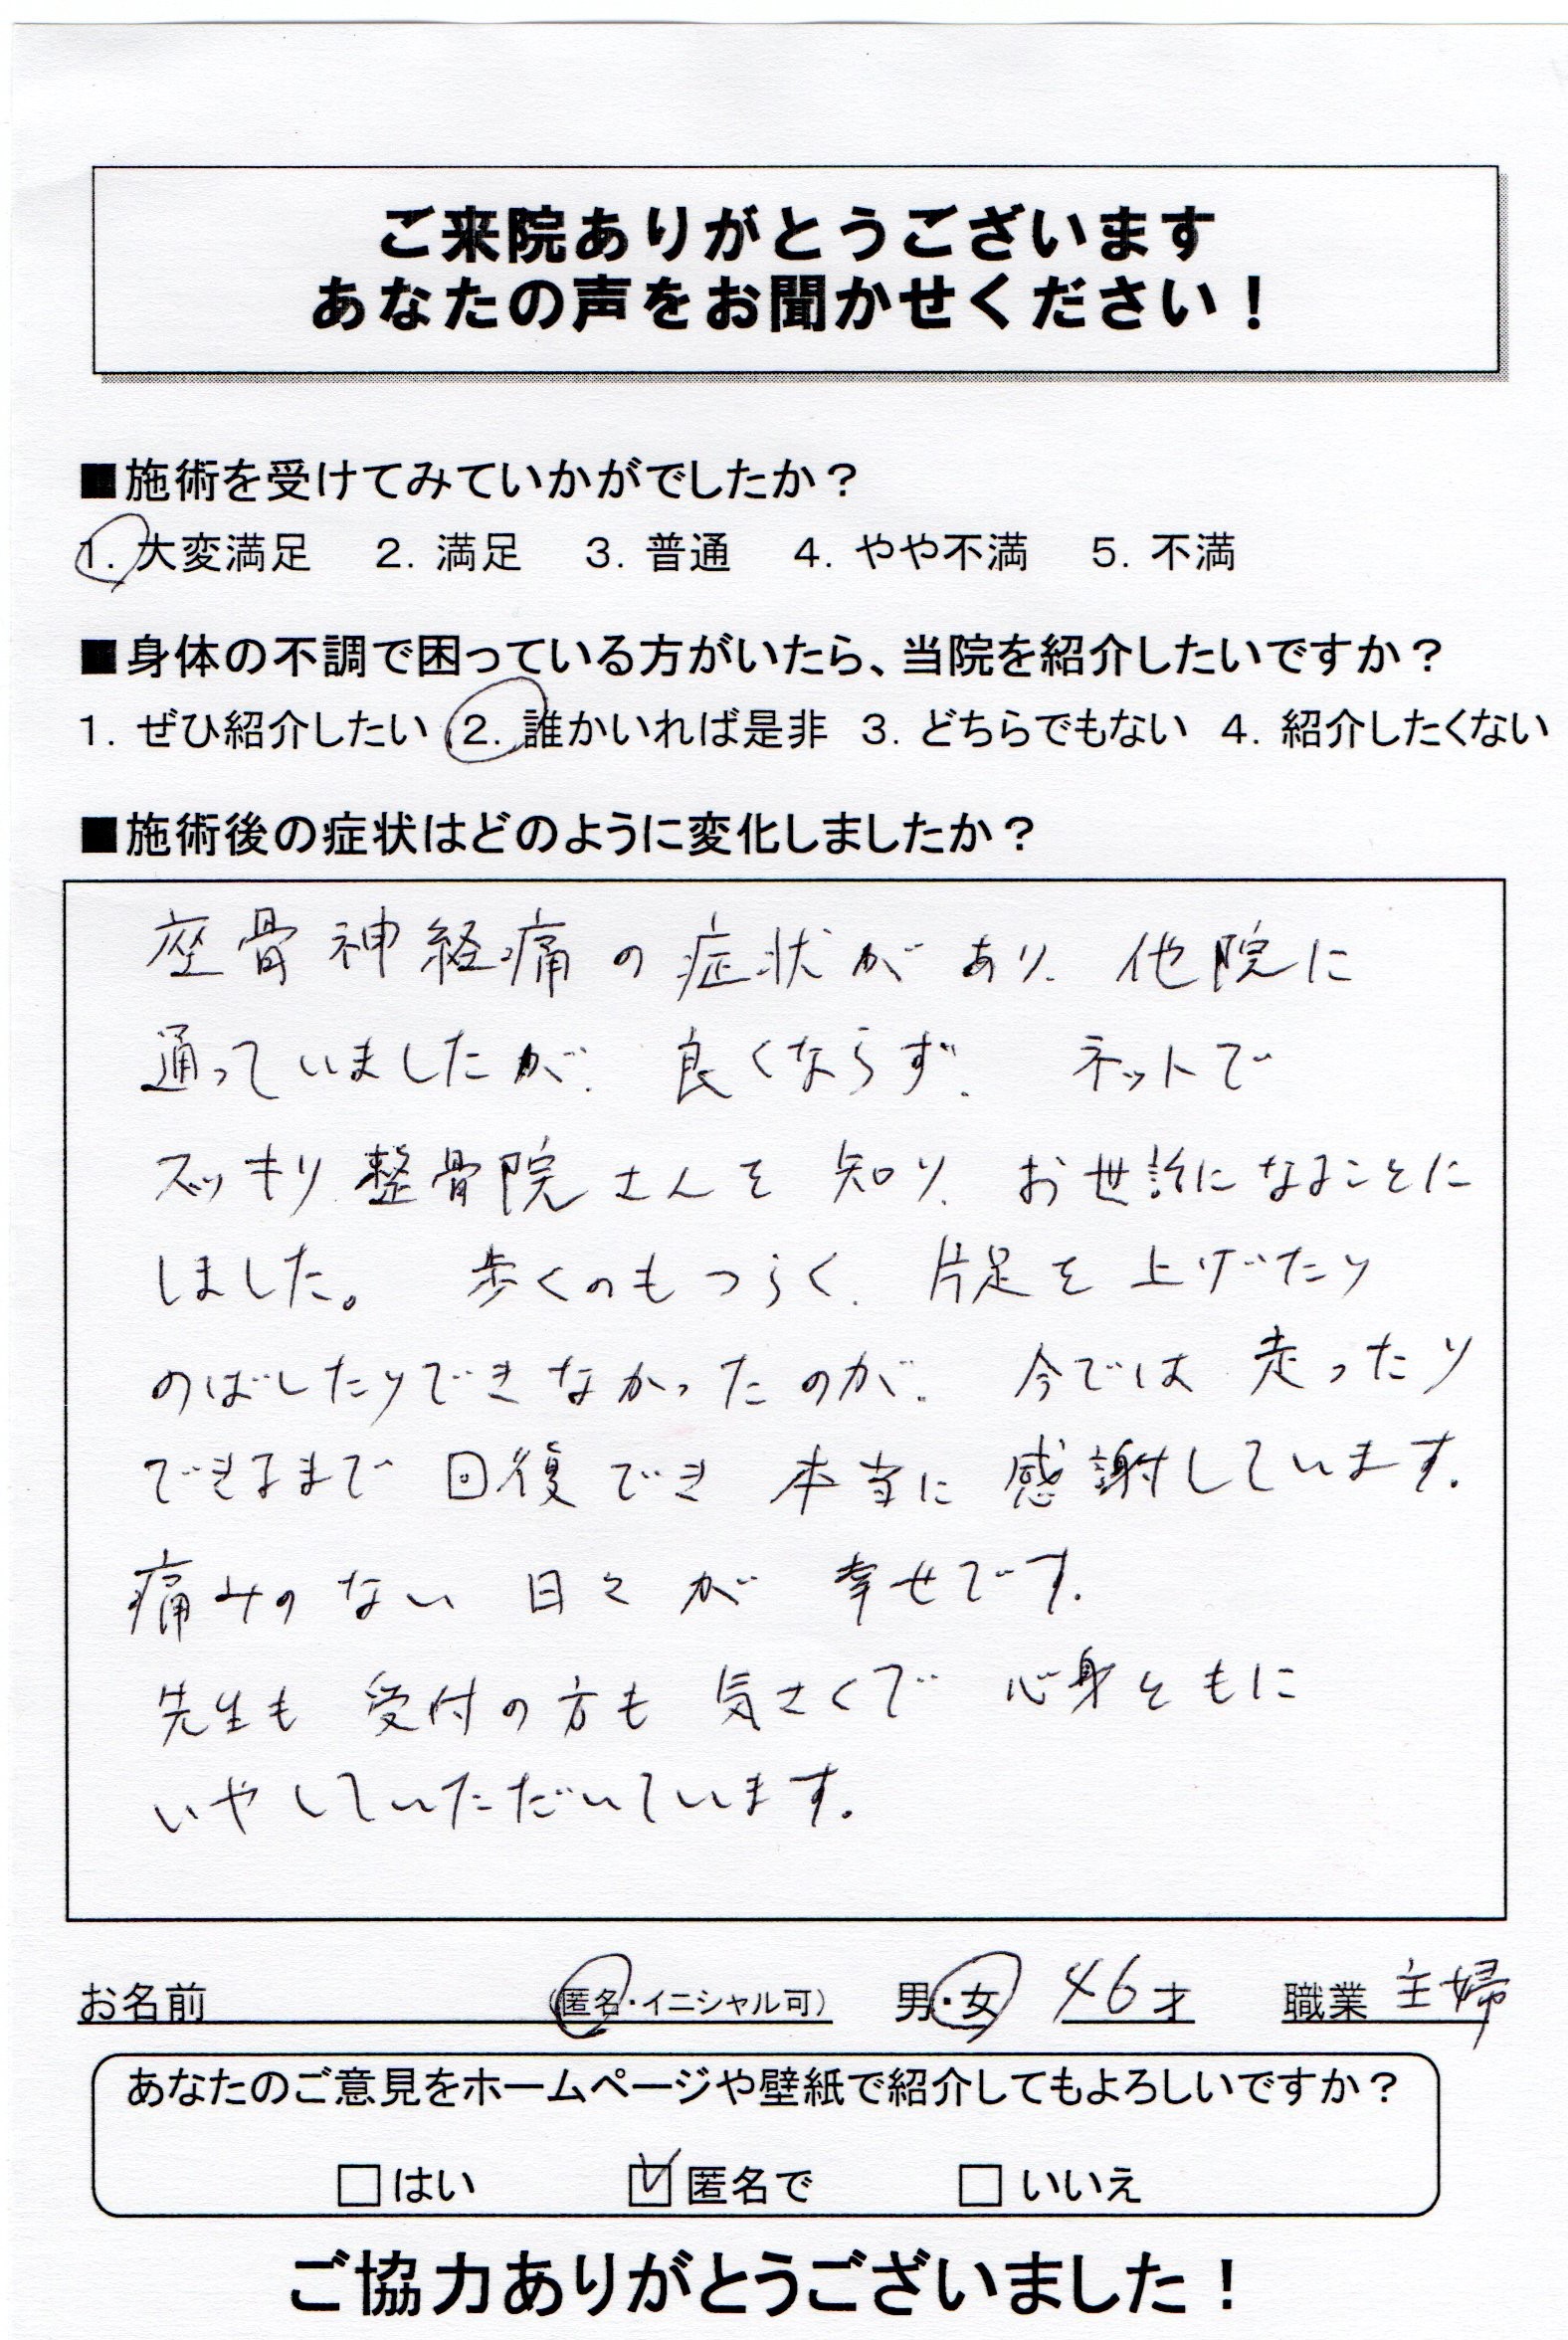 ご来院ありがとうございます
あなたの声をお聞かせください！
■施術を受けてみていかがでしたか？
1. 大変満足 2. 満足 3. 普通 4. やや不満 5. 不満
■身体の不調で困っている方がいたら、当院を紹介したいですか？
1. ぜひ紹介したい 2. 誰かいれば是非 3. どちらでもない 4. 紹介したくない
■施術後の症状はどのように変化しましたか？
座骨神経痛の症状があり、他院に
通っていましたが、良くならず、ネットで
ズッキリ整骨院さんを知り、お世話になることに
しました。歩くのもつらく、片足を上げたり
のばしたりできなかったのが、今では走ったり
できるまで回復でき本当に感謝しています。
痛みのない日々が幸せです。
先生も受付の方も気さくで心身ともに
いやしていただいています。
お名前 （匿名・イニシャル可） 男・女 46才 職業 主婦
あなたのご意見をホームページや壁紙で紹介してもよろしいですか？
□はい ☑匿名で □いいえ
ご協力ありがとうございました！